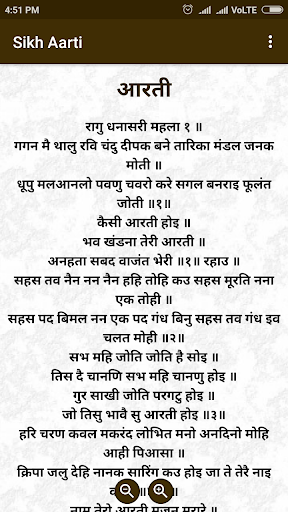 4:51 PM VoLTE
Sikh Aarti
आरती
रागु धनासरी महला १ ॥
गगन मै थालु रवि चंदु दीपक बने तारिका मंडल जनक
मोती ॥
धूपु मलआनलो पवणु चवरो करे सगल बनराइ फूलंत
जोती ॥१॥
कैसी आरती होइ ॥
भव खंडना तेरी आरती ॥
अनहता सबद वाजंत भेरी ॥१॥ रहाउ ॥
सहस तव नैन नन नैन हहि तोहि कउ सहस मूरति नना
एक तोही ॥
सहस पद बिमल नन एक पद गंध बिनु सहस तव गंध इव
चलत मोही ॥२॥
सभ महि जोति जोति है सोइ ॥
तिस दै चानणि सभ महि चानणु होइ ॥
गुर साखी जोति परगटु होइ ॥
जो तिसु भावै सु आरती होइ ॥३॥
हरि चरण कवल मकरंद लोभित मनो अनदिनो मोहि
आही पिआसा ॥
क्रिपा जलु देहि नानक सारिंग कउ होइ जा ते तेरै नाइ
नाम तेरो आरती मजनु मुरारे ॥